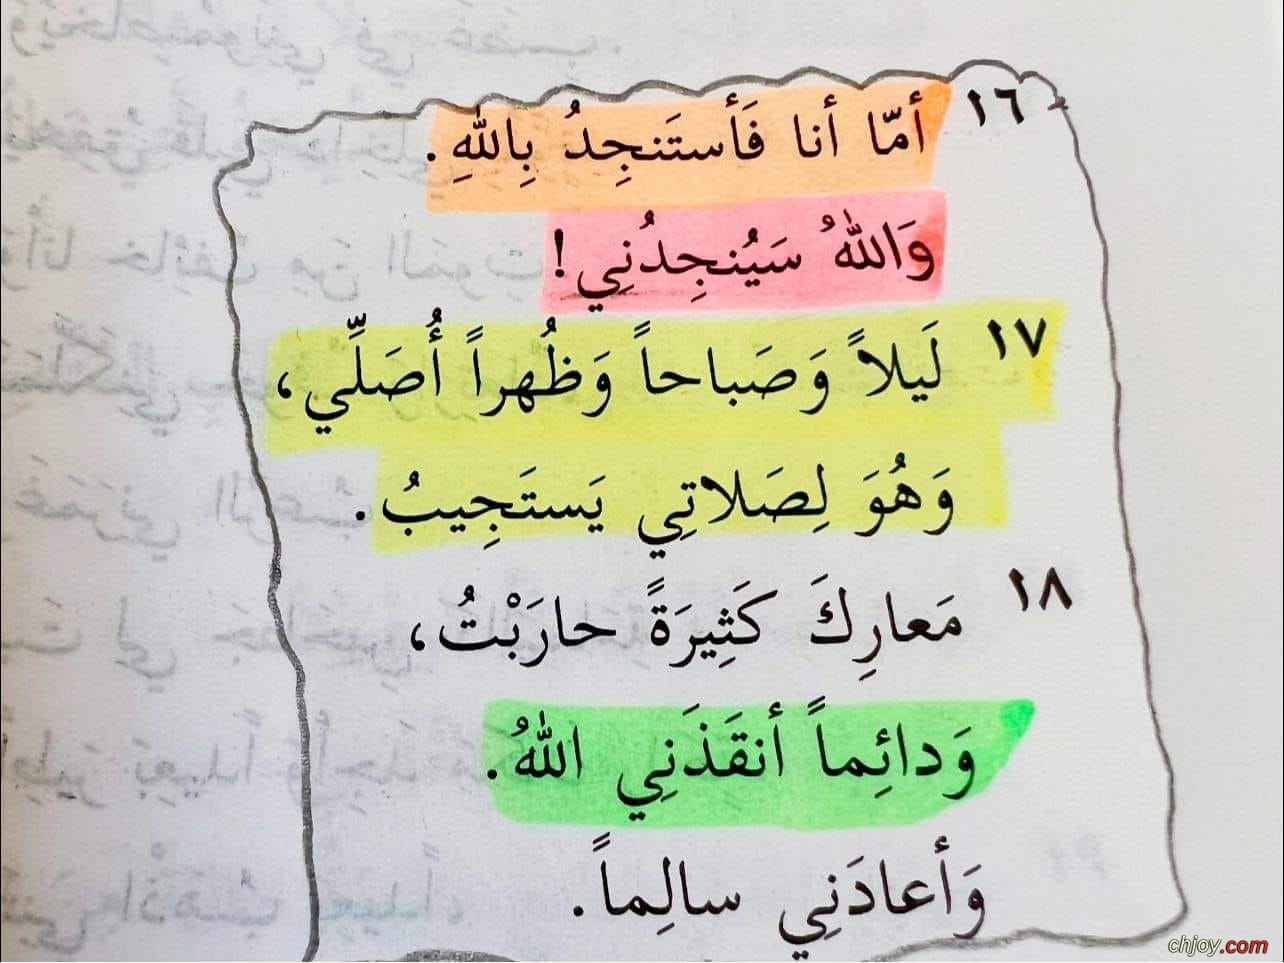 ١٦ أمّا أنا فَأستَنجِدُ بِاللهِ.
وَاللهُ سَيُنجِدُنِي!
١٧ لَيلاً وَصَباحاً وَظُهراً أُصَلِّي،
وَهُوَ لِصَلاتِي يَستَجِيبُ.
١٨ مَعارِكَ كَثِيرَةً حارَبْتُ،
وَدائِماً أنقَذَنِي اللهُ.
وَأعادَنِي سالِماً.
chjoy.com